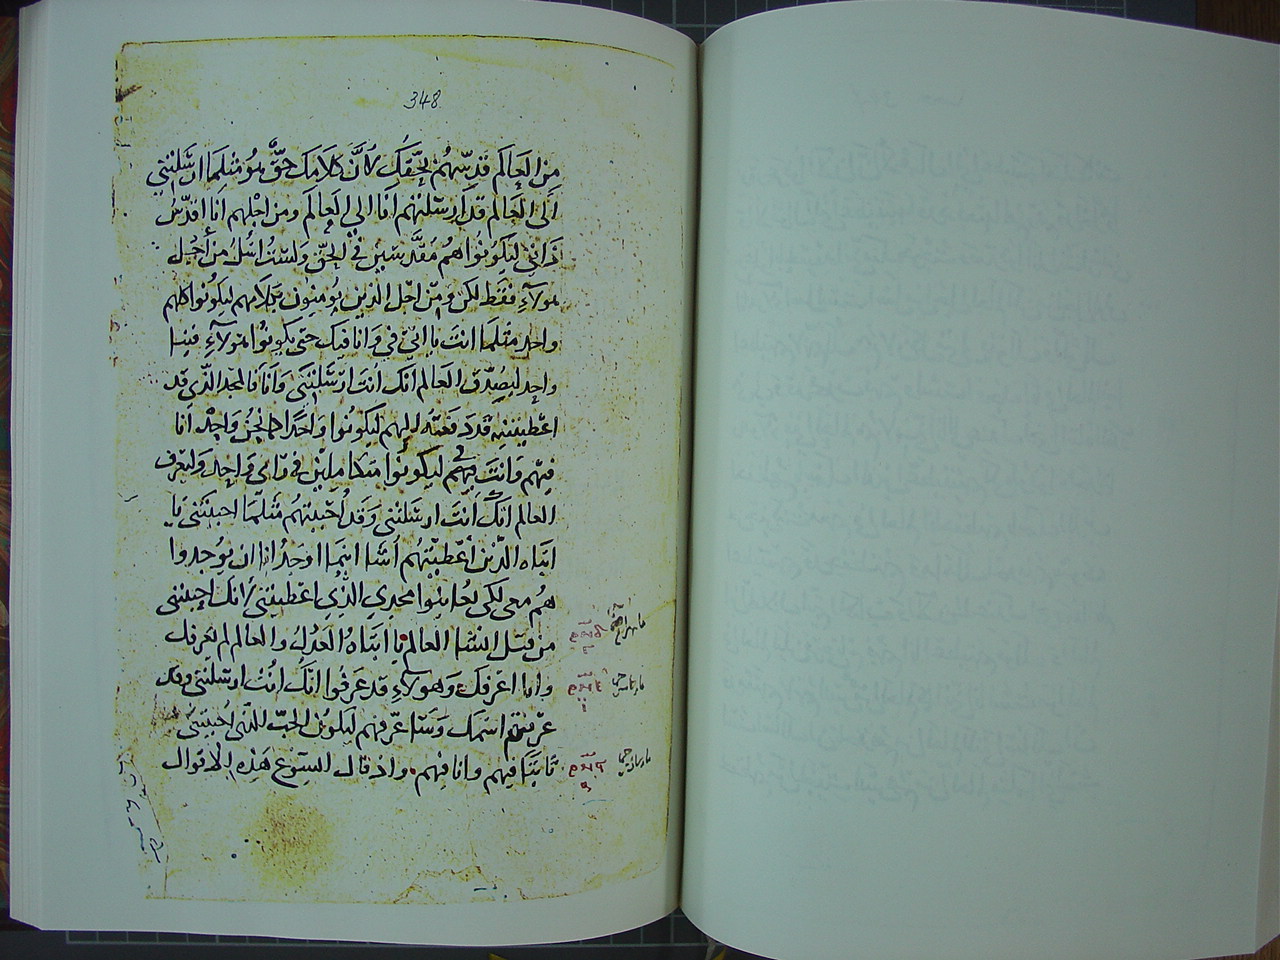 348
من العالم قدسهم بحقك لأن كلامك حق هو مثلما ارسلتني
الى العالم قد ارسلتهم انا الي العالم ومن اجلهم انا اقدس
ذاتي ليكونوا هم مقدسين في الحق ولست اسل من أجل
هولاءِ فقط لكن ومن اجل الذين يومنون بكلامهم ليكونوا كلهم
واحد مثلما انت يا ابي في وانا فيك حتى يكونوا هولاءِ فينا
واحد ليصدق العالم انك انت ارسلتني وانا فالمجد الذي قد
اعطيتنيه قد دفعته اليهم ليكونوا واحدًا كما نحن واحد انا
فيهم وانت في ليكونوا متكاملين في واحد وليعرف
العالم انك انت ارسلتني وقد أحببتهم مثلما احببتني يا
ابتاه الذين أعطيتهم أشا اينما اوجد انا ان يوجدوا
هم معي لكي يعاينوا مجدي الذي اعطيتني لأنك احببتني
من قبل انشا العالم يا ابتاه العدل والعالم لم يعرفك
وانا اعرفك وهولاءِ قد عرفوا انك انت ارسلتني وقد
عرفتهم اسمك وساعرفهم ليكون الحب الذي احببتني
ثابتًا فيهم وانا فيهم. واذ قال ايسوع هذه الاقوال